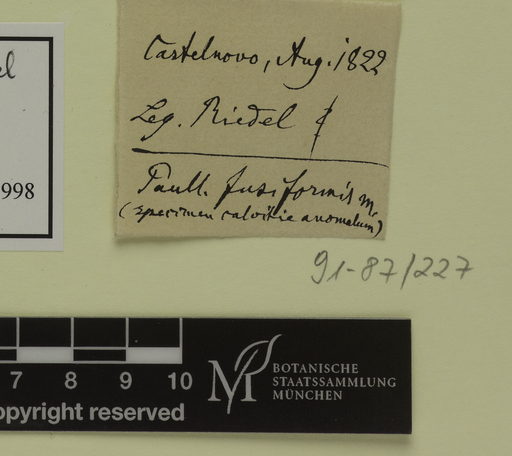 Castelnovo, Aug. 1822
Leg. Riedel
Paull. fusiformis m.
(specimen calvitie anomalum)
91-87/227
998
7 8 9 10
opyright reserved
M
BOTANISCHE
STAATSSAMMLUNG
MÜNCHEN